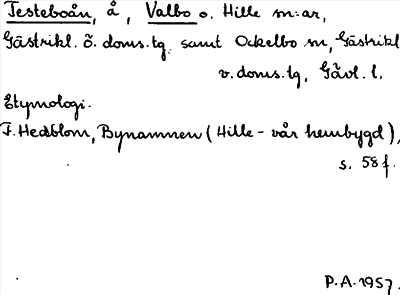 Testeboån, å, Valbo o. Hille sn:ar,
Gästrikl. ö. doms.tg. samt Ockelbo sn, Gästrikl
v. doms.tg, Gävl. l.
Etymologi.
F. Hedblom, Bynamnen (Hille - vår hembygd),
s. 58 f.
P.A. 1957.